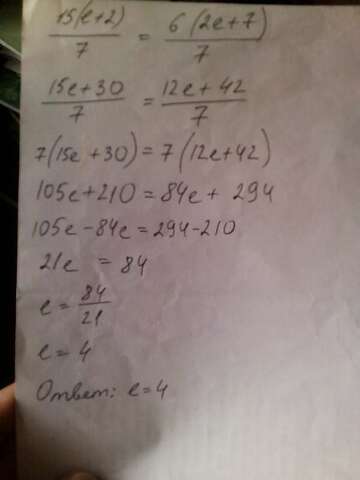 15(e+2)/7 = 6(2e+7)/7
15e+30/7 = 12e+42/7
7(15e+30)=7(12e+42)
105e+210=84e+294
105e-84e=294-210
21e=84
e=84/21
e=4
Ответ: e=4